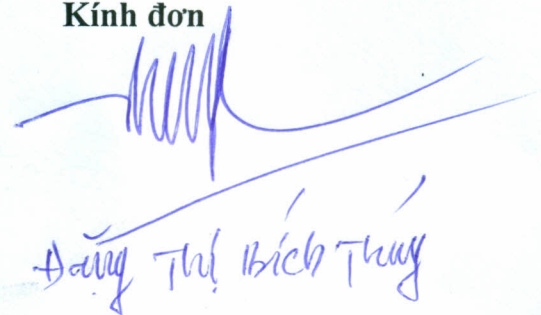 Kính đơn
Đặng Thị Bích Thúy